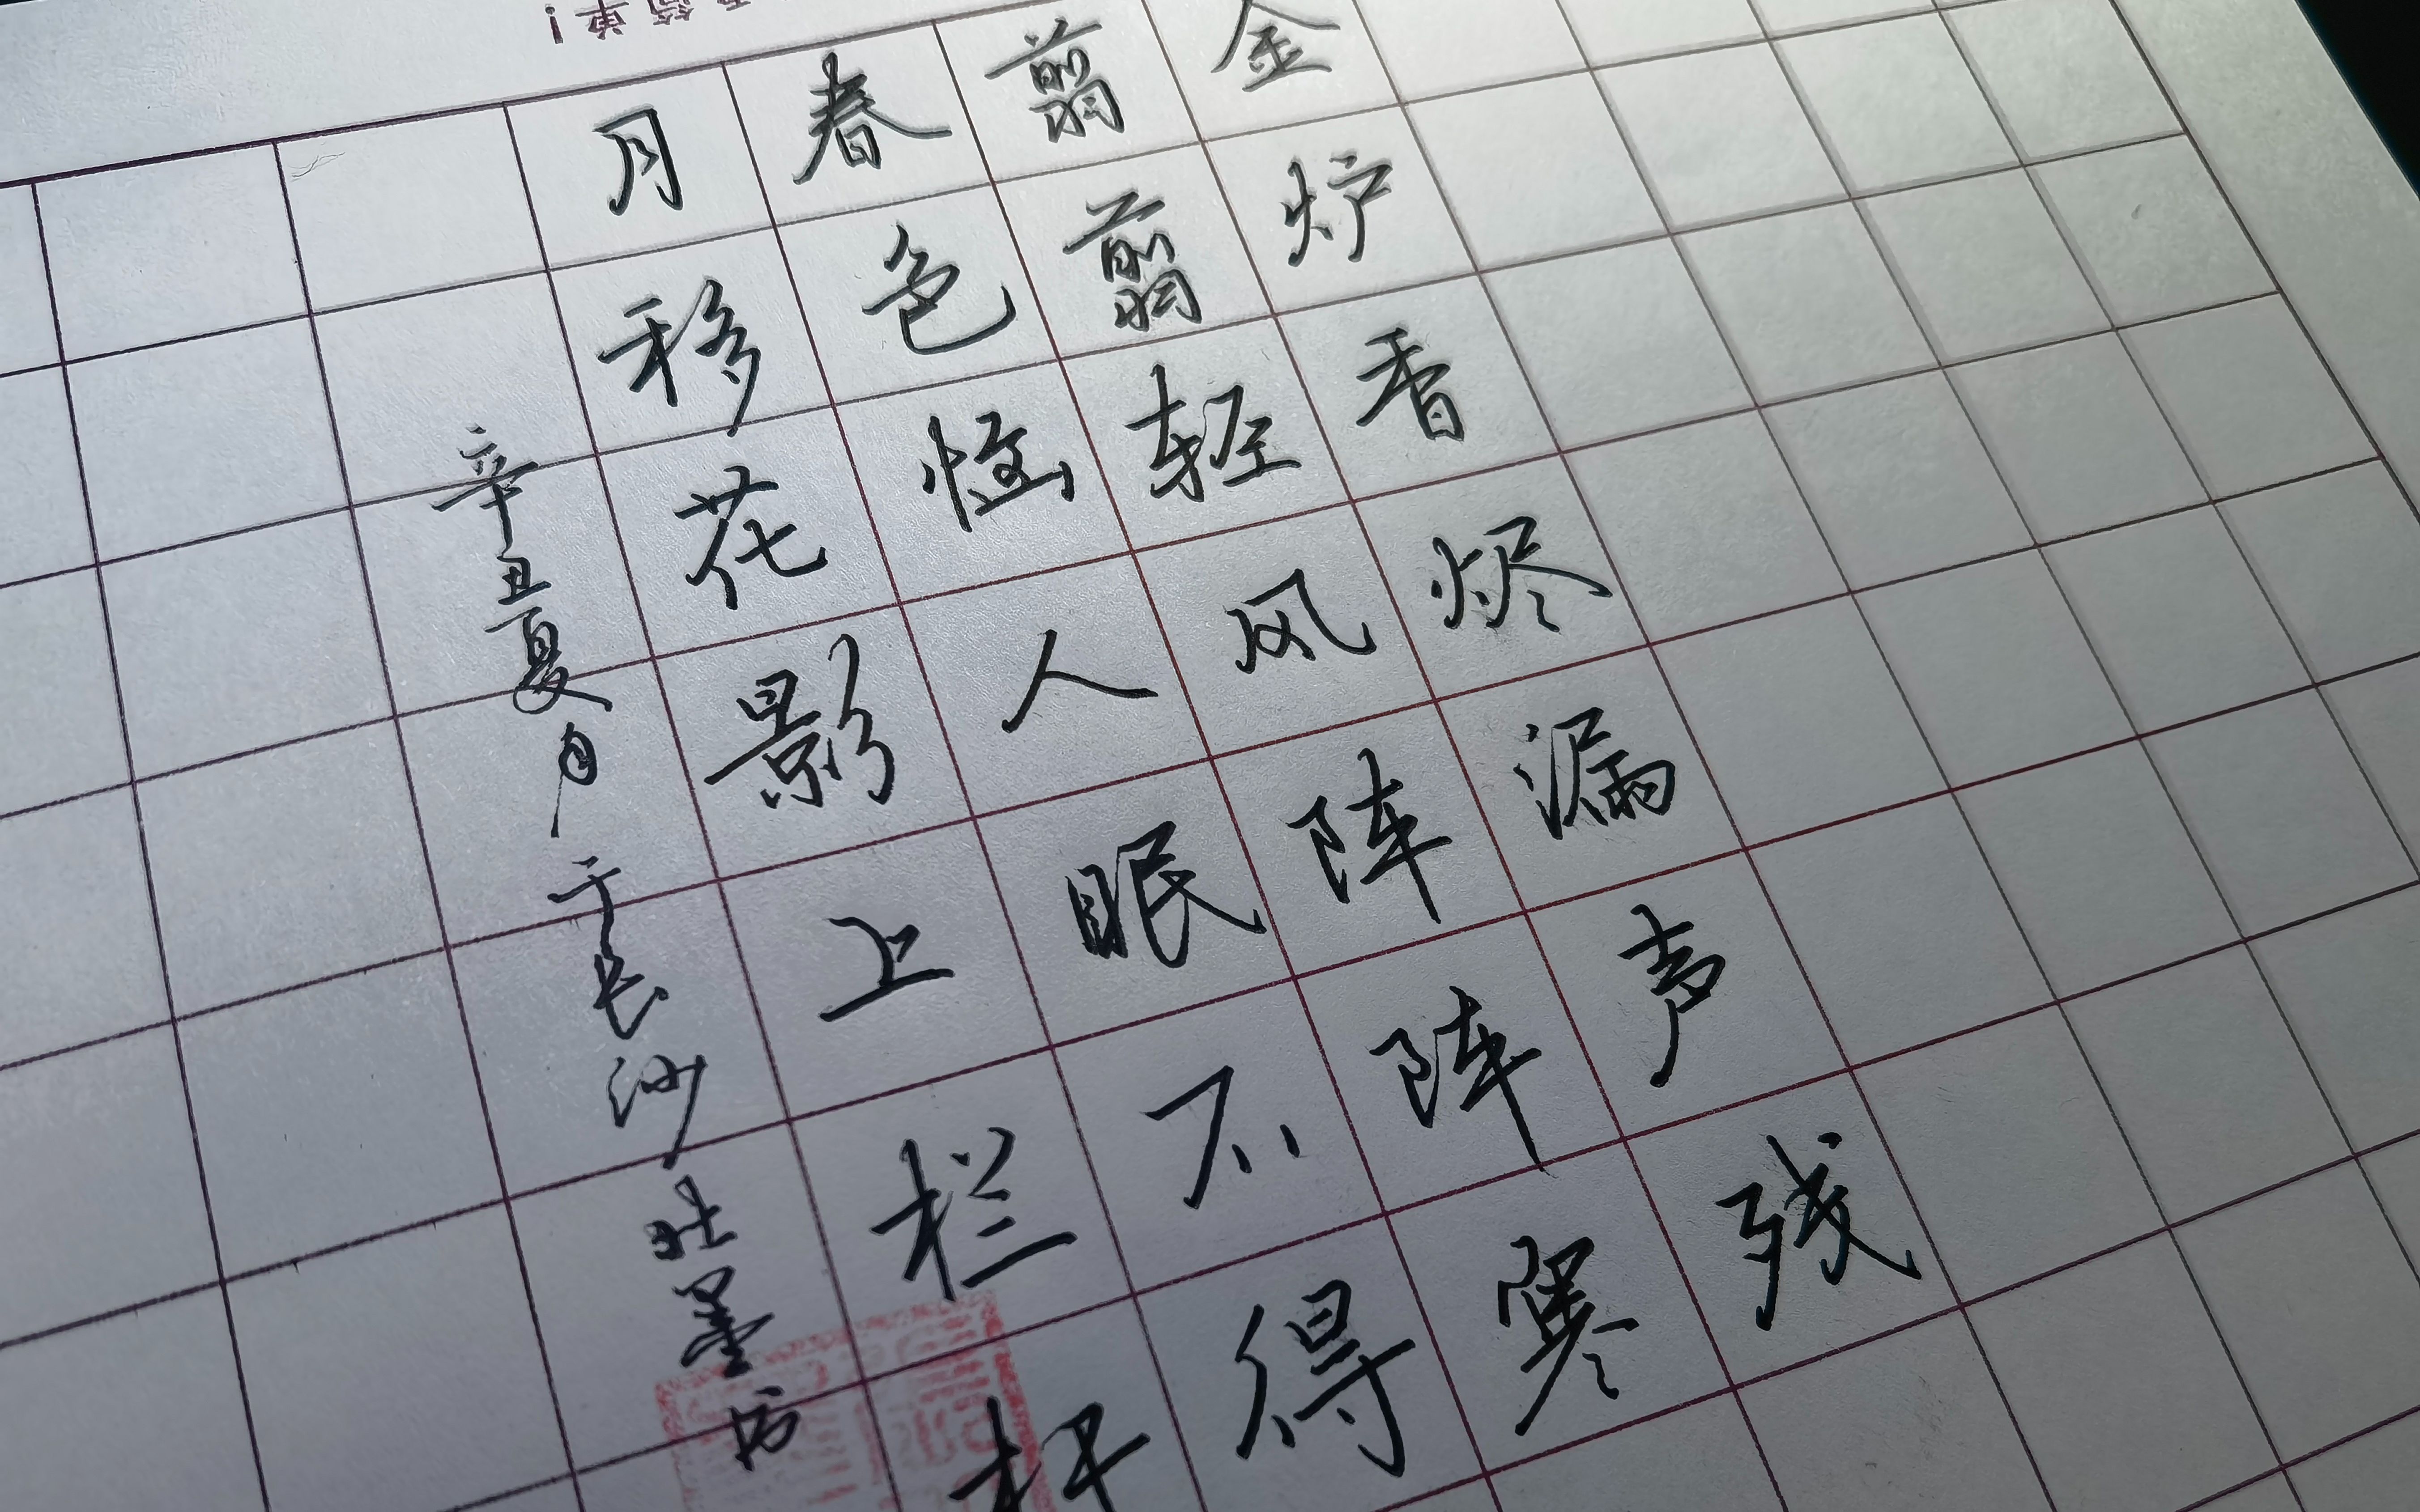 金炉香烬漏声残
翦翦轻风阵阵寒
春色恼人眠不得
月移花影上栏杆
辛丑夏月于长沙
墨坊